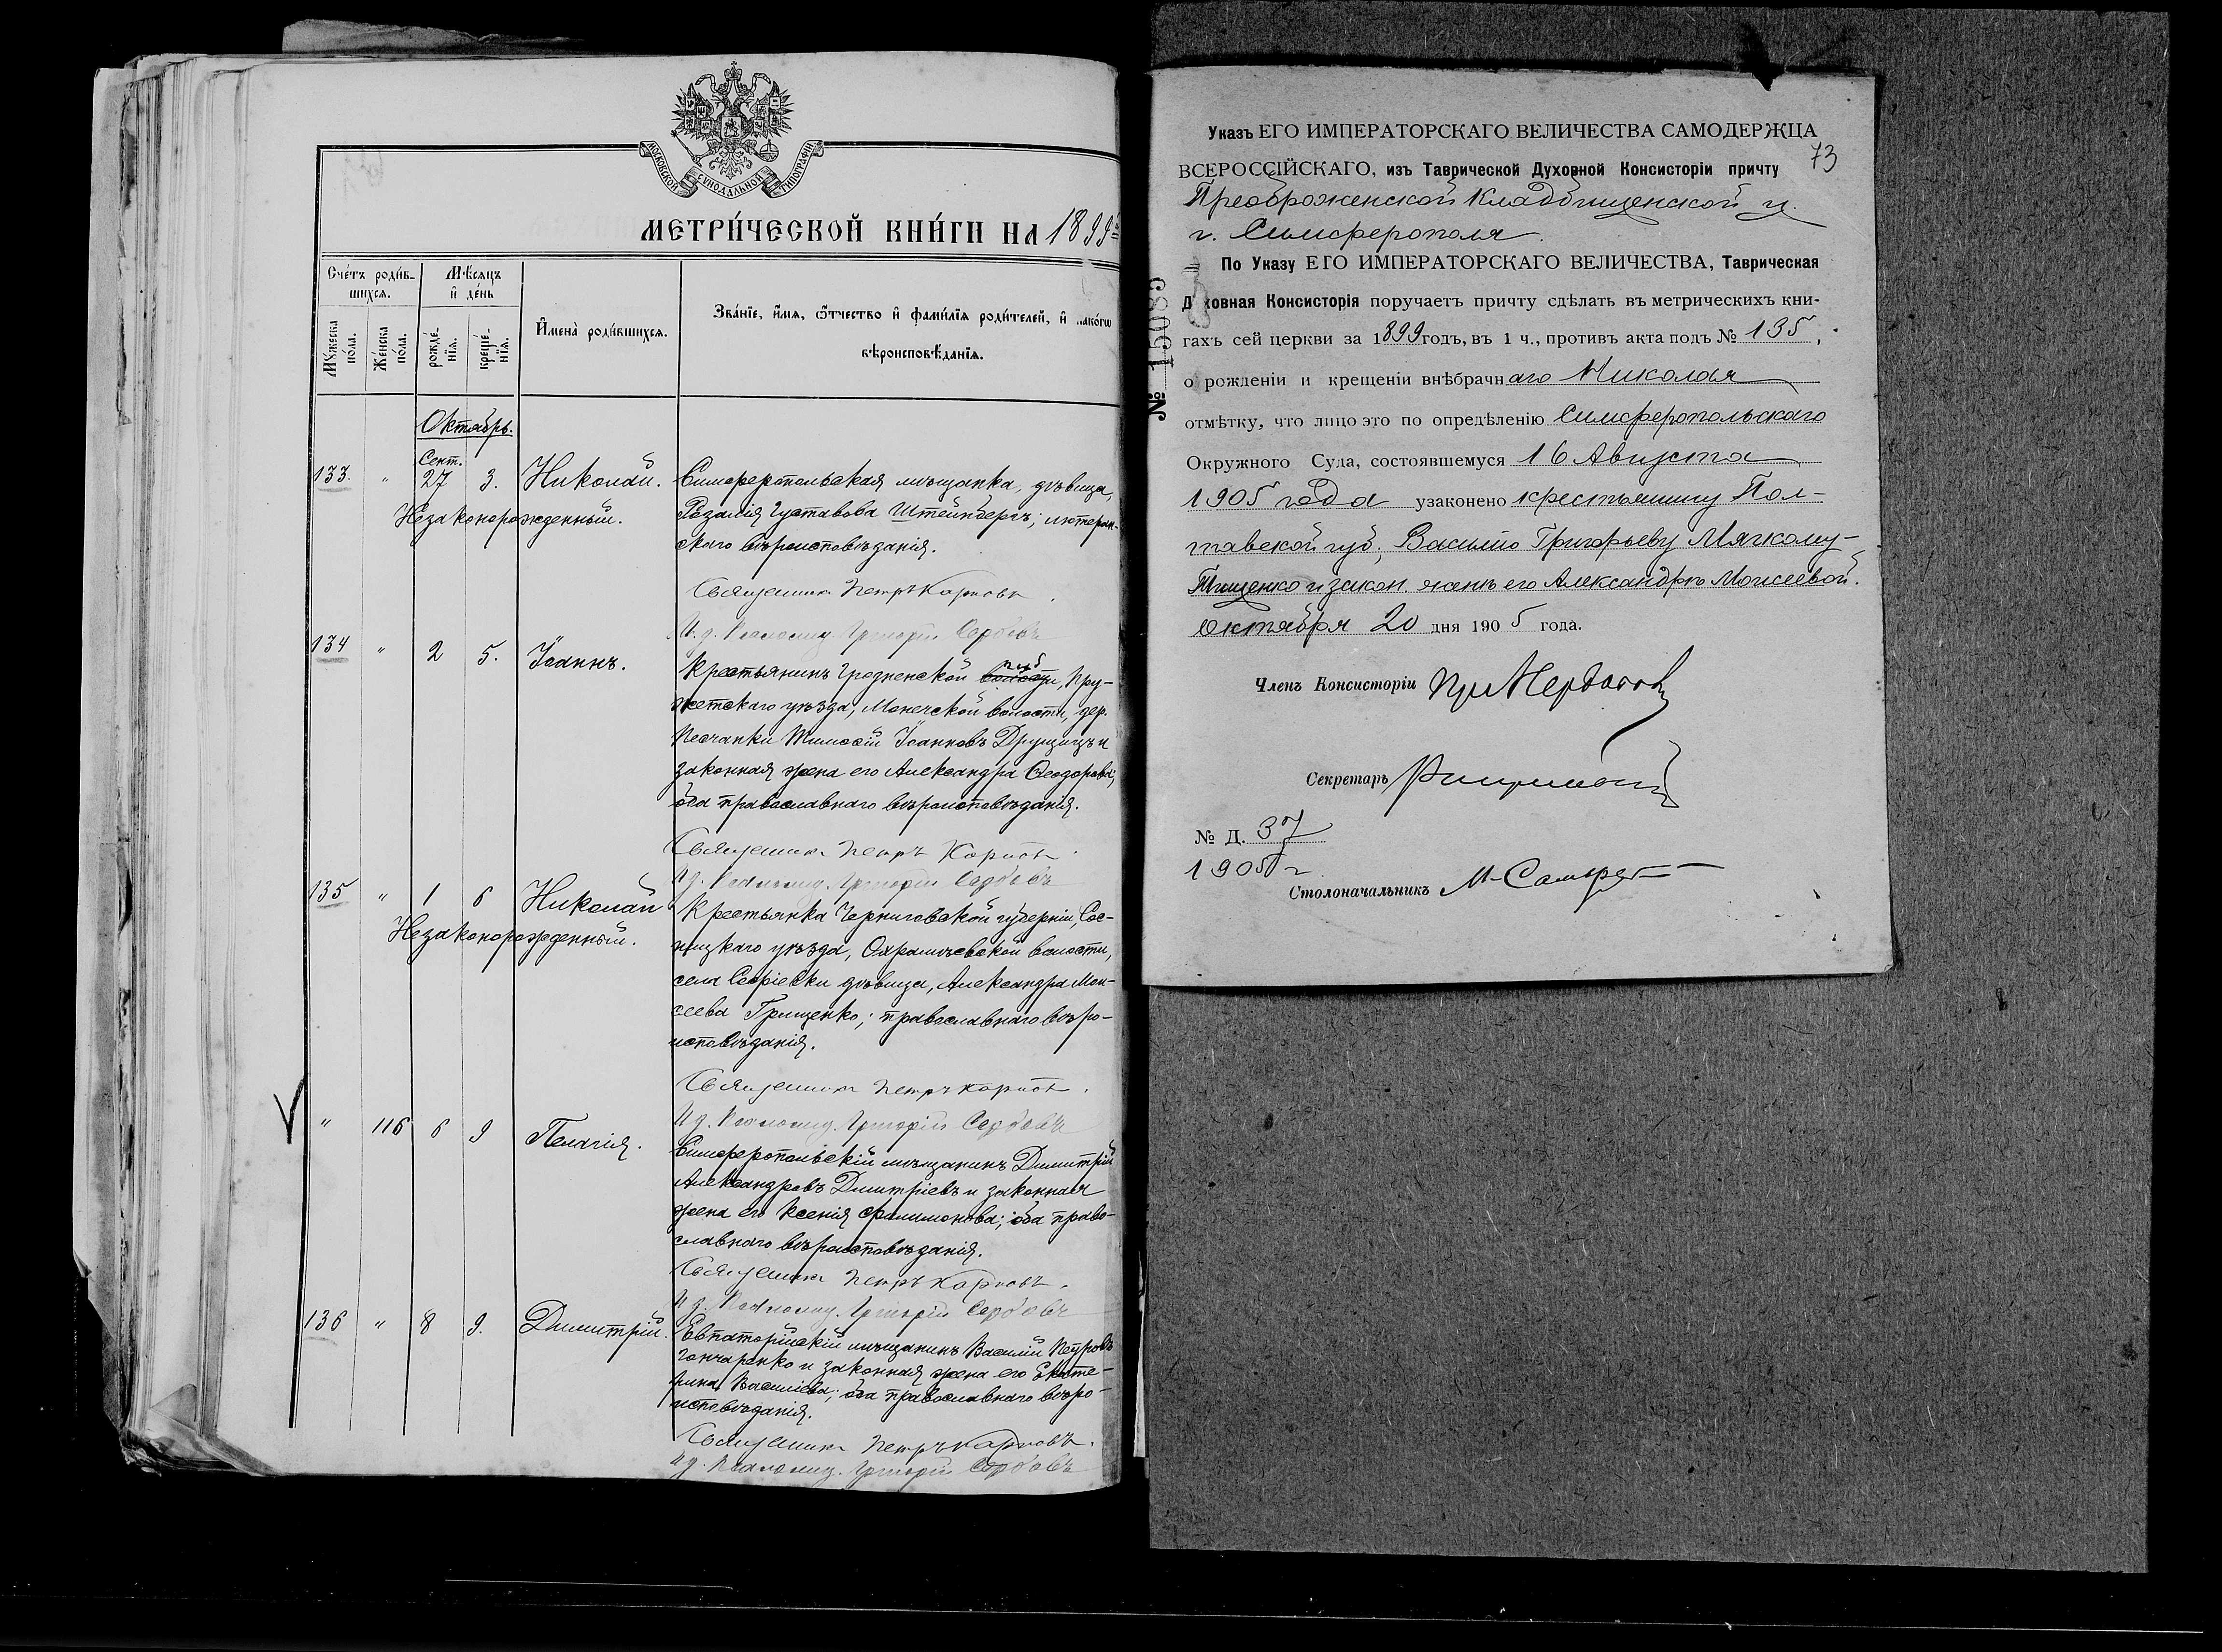 МОСКОВСКОЙ СѴНОДАЛЬНОЙ ТИПОГРАФІИ
МЕТРИ́ЧЕСКОЙ КНИ́ГИ НА 1899
Сче́тъ роди́в-
шихся.
Мѣ́сяцъ
и҆ де́нь
Мꙋ́жеска
по́ла.
Же́нска
по́ла.
рожде́-
нїя.
креще́-
нїя.
И҆мена̀ роди́вшихся.
Зва́нїе, и҆́мя, ѻ҆́тчество и҆ фами́лїя роди́телей, и҆ како́гѡ
вѣроисповѣ́данїя.
Октябрь.
Сент.
133. " 27 3. Николай. Симферопольская мѣщанка, дѣвица,
Незаконорожденный. Розалія Густавова Штейнбергъ; лютеран-
скаго вѣроисповѣданія.
Священникъ Петръ Карповъ
И. д. Псаломщ. Григорій Сербовъ
134 " 2 5. Іоаннъ. Крестьянинъ Гродненской губ, Пру-
жетскаго уѣзда, Монечской волости, дер.
Песчанки Тимоѳій Іоанновъ Друщицъ и
законная жена его Александра Ѳеодорова;
оба православнаго вѣроисповѣданія.
Священникъ Петръ Карповъ
И д. Псаломщ. Григорій Сербовъ
135 " 1 6 Николай Крестьянка Черниговской губерніи, Сос-
Незаконорожденный. ницкаго уѣзда, Охрамѣевской волости,
села дѣвица, Александра Мои-
сеева Грищенко; православнаго вѣро-
исповѣданія.
Священникъ Петръ Карповъ.
И д. Псаломщ. Григорій Сербовъ
" 116 6 9 Пелагія. Симферопольскій мѣщанинъ Димитрій
Александровъ Дмитріевъ и законная
жена его Ксенія Филимонова; оба право-
славнаго вѣроисповѣданія.
Священникъ Петръ Карповъ.
И д. Псаломщ. Григорій Сербовъ
136 " 8 9. Димитрій. Евпаторійскій мѣщанинъ Василій Петровъ
Гончаренко и законная жена его Екате-
рина Василіева; оба православнаго вѣро-
исповѣданія.
Священникъ Петръ Карповъ.
И д. Псаломщ. Григорій Сербовъ
Указъ ЕГО ИМПЕРАТОРСКАГО ВЕЛИЧЕСТВА САМОДЕРЖЦА
73
ВСЕРОССІЙСКАГО, изъ Таврической Духовной Консисторіи причту
Преображенской Кладбищенской ц.
г. Симферополя.
№ 15085
По Указу ЕГО ИМПЕРАТОРСКАГО ВЕЛИЧЕСТВА, Таврическая
Духовная Консисторія поручаетъ причту сдѣлать въ метрическихъ кни-
гахъ сей церкви за 1899 годъ, въ 1 ч., противъ акта подъ № 135,
о рожденіи и крещеніи внѣбрачнаго Николая
отмѣтку, что лицо это по опредѣленію Симферопольскаго
Окружного Суда, состоявшемуся 16 Августа
1905 года узаконено крестьянину Пол-
тавской губ. Василію Григорьеву Мягкому-
Тищенко и закон. женѣ его Александрѣ Моисеевой.
Октября 20 дня 1905 года.
Членъ Консисторіи
Секретарь
№ Д. 37
1905 г
Столоначальникъ